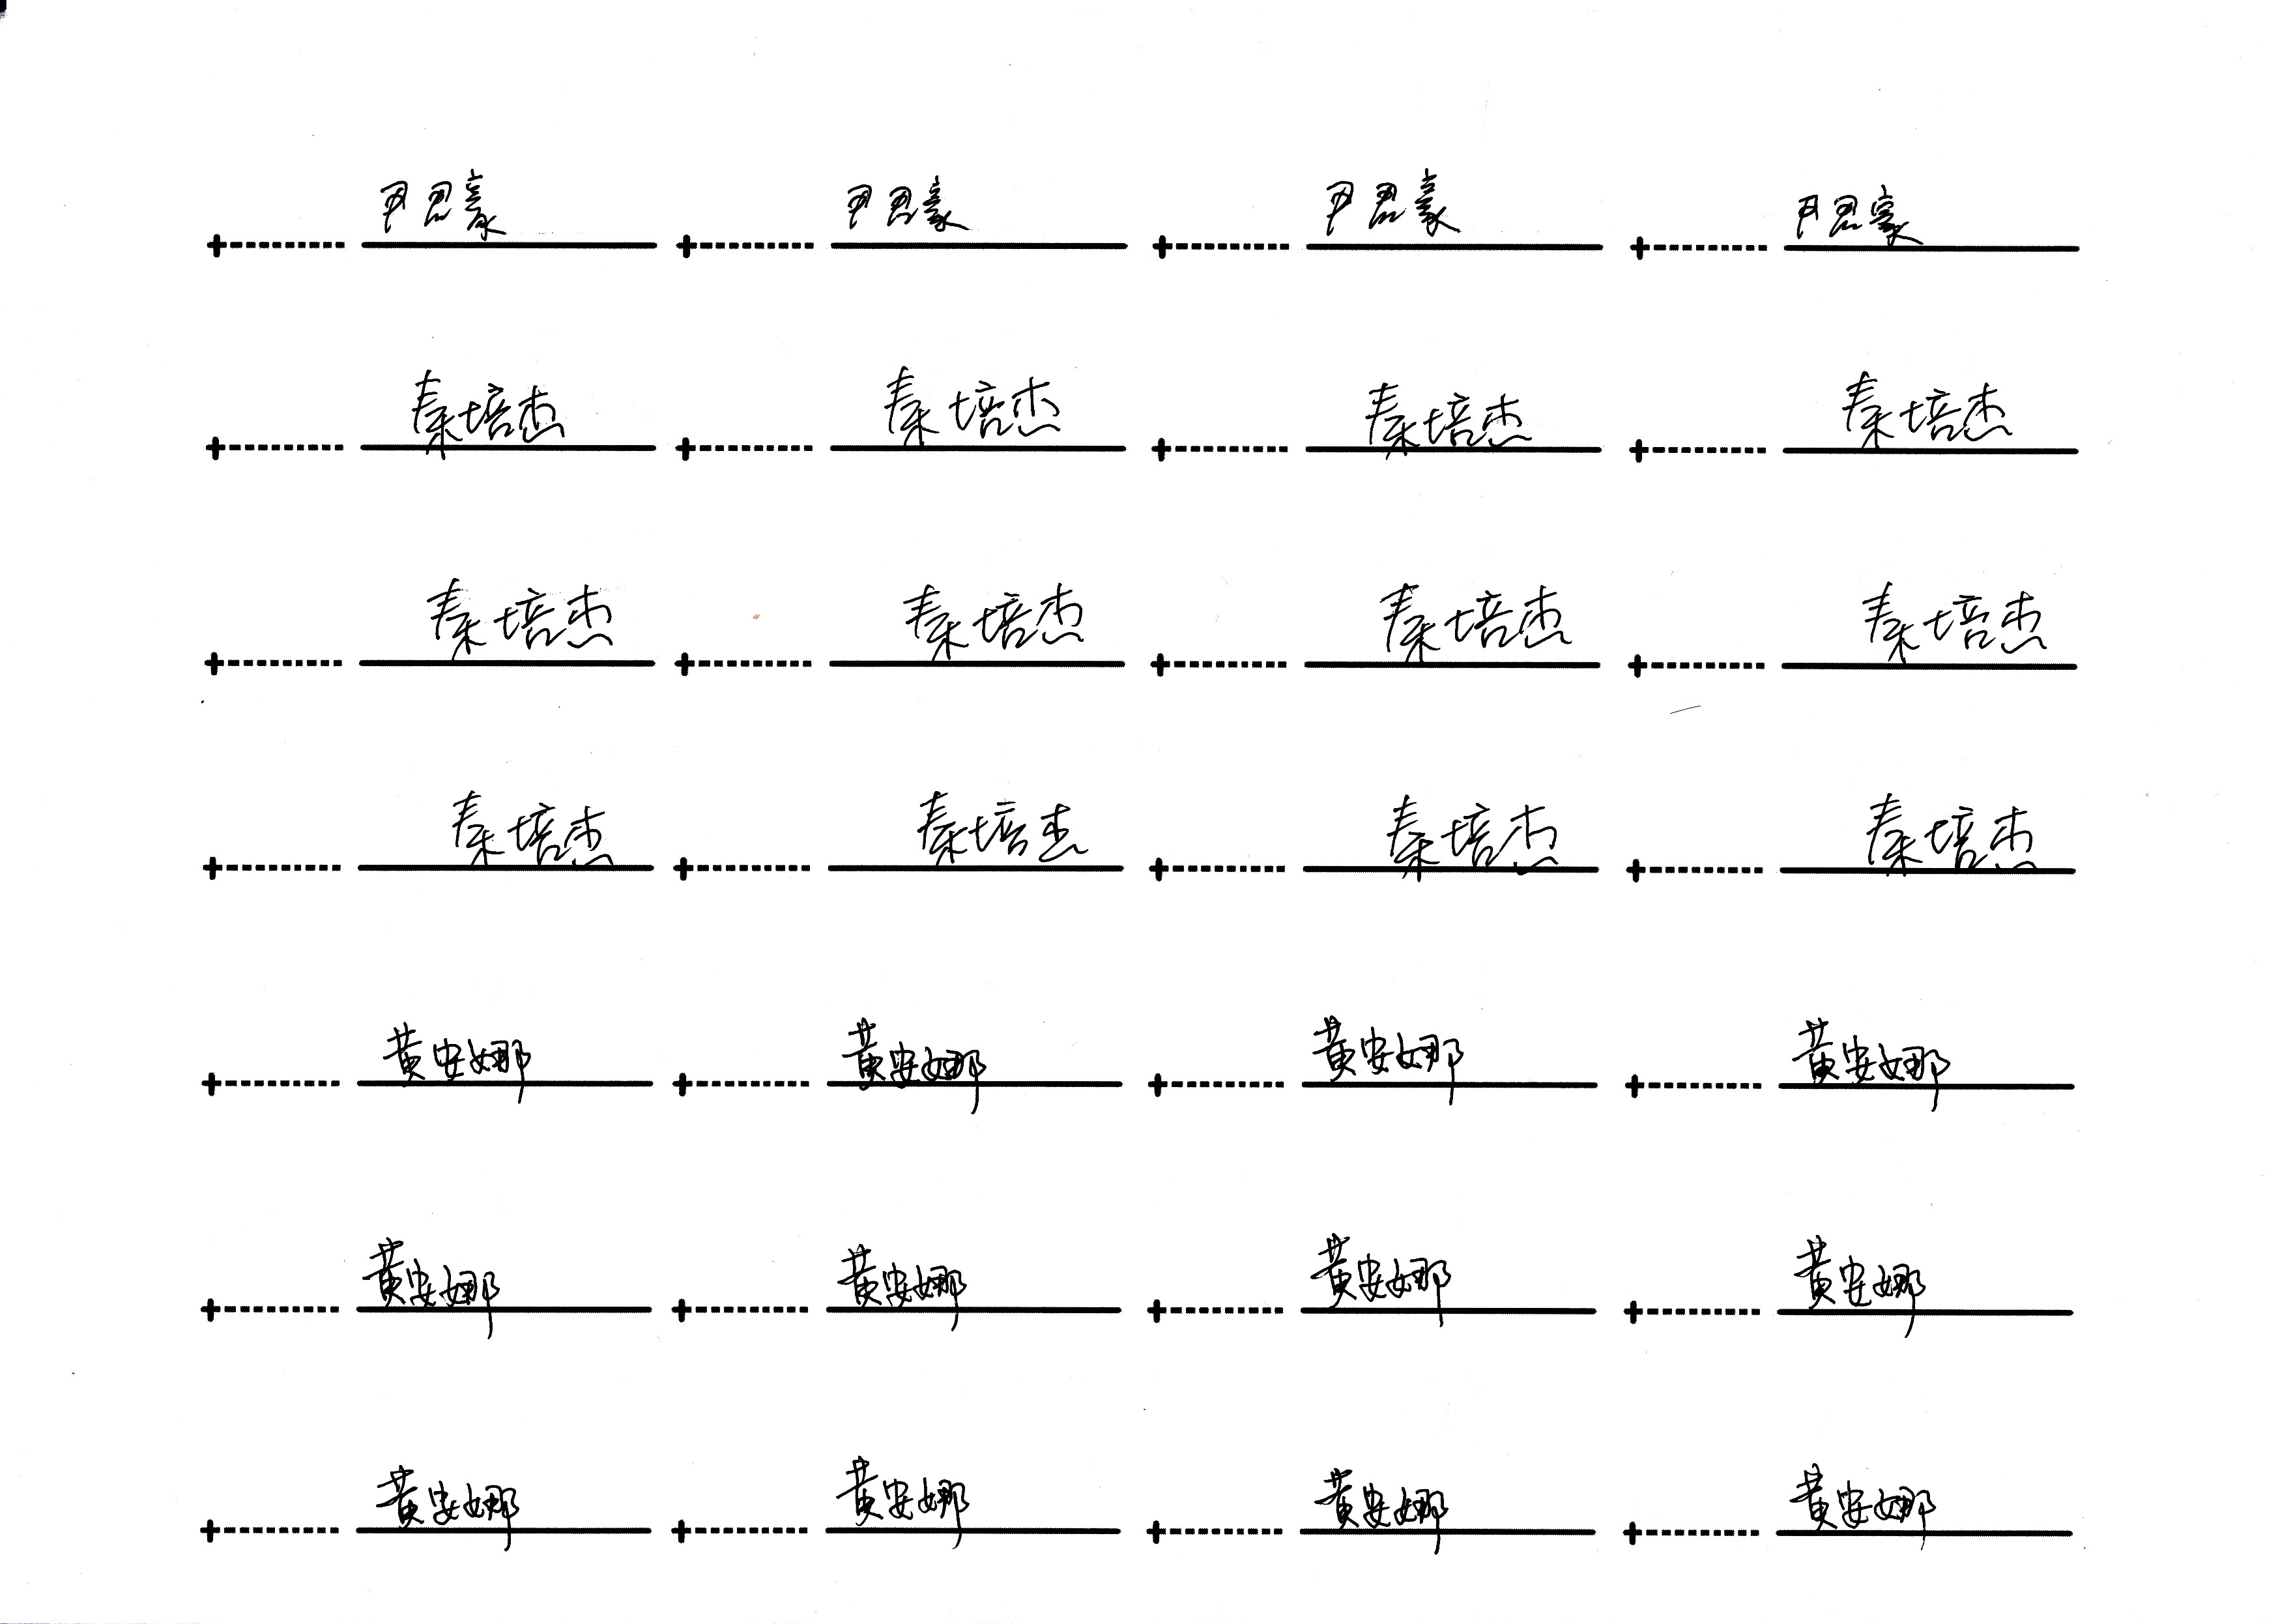 尹君豪 尹君豪 尹君豪 尹君豪
秦培杰 秦培杰 秦培杰 秦培杰
秦培杰 秦培杰 秦培杰 秦培杰
秦培杰 秦培杰 秦培杰 秦培杰
黄安娜 黄安娜 黄安娜 黄安娜
黄安娜 黄安娜 黄安娜 黄安娜
黄安娜 黄安娜 黄安娜 黄安娜